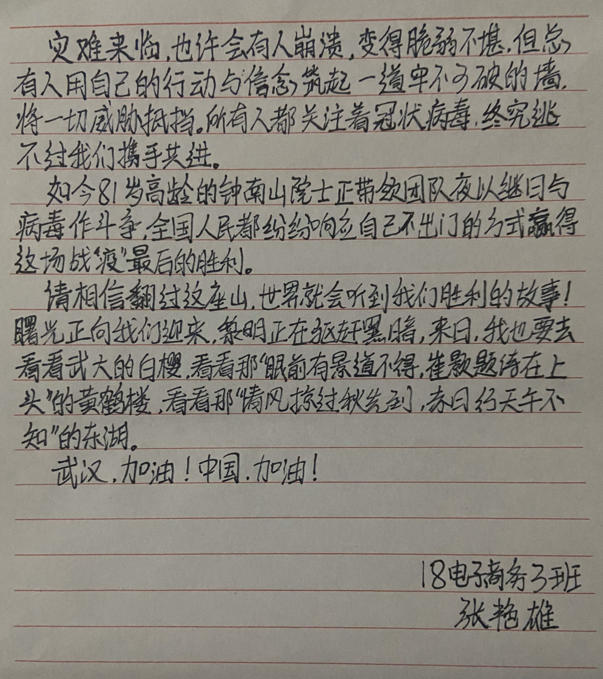 灾难来临,也许会有人崩溃,变得脆弱不堪,但总
有人用自己的行动与信念,筑起一道牢不可破的墙,
将一切威胁抵挡。所有人都关注着冠状病毒,终究逃
不过我们携手共进。
如今81岁高龄的钟南山院士正带领团队夜以继日与
病毒作斗争,全国人民都纷纷响应自己不出门的方式赢得
这场战“疫”最后的胜利。
请相信翻过这座山,世界就会听到我们胜利的故事!
曙光正向我们迎来,黎明正在驱赶黑暗,来日,我也要去
看看武大的白樱,看看那“眼前有景道不得,崔颢题诗在上
头”的黄鹤楼,看看那“清风掠过秋先到,赤日行天午不
知”的东湖。
武汉,加油!中国,加油!
18电子商务3班
张艳雄